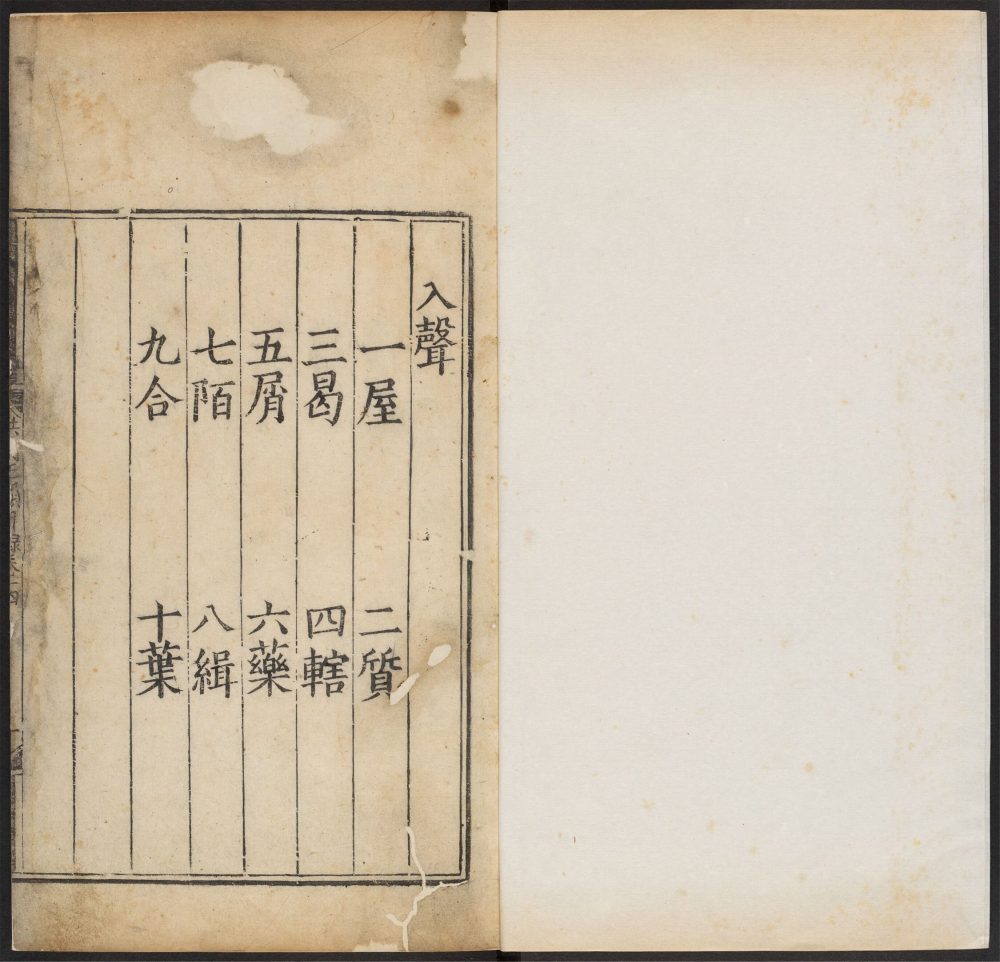 入聲
一屋 二質
三曷 四轄
五屑 六藥
七陌 八緝
九合 十葉